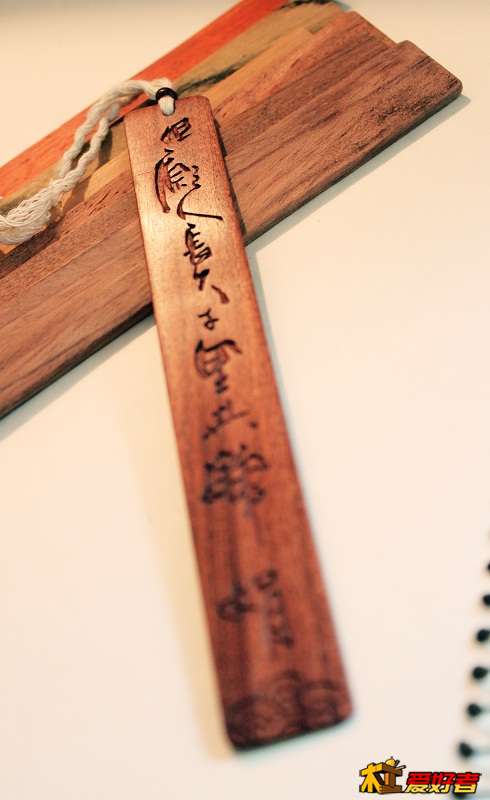 但願人長久千里共嬋娟
木工爱好者